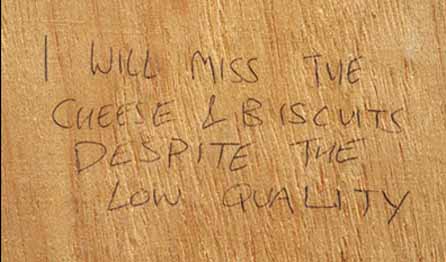 I WILL MISS THE
CHEESE & BISCUITS
DESPITE THE
LOW QUALITY